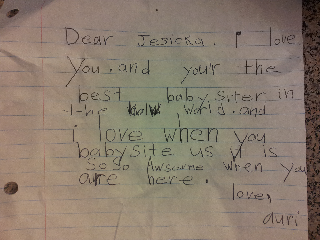 Dear Jesicka. I love
you. and your the
best babysiter in
the world. and
i love when you
babysite us y is
soso Awsome wren you
are here.
love,
auri